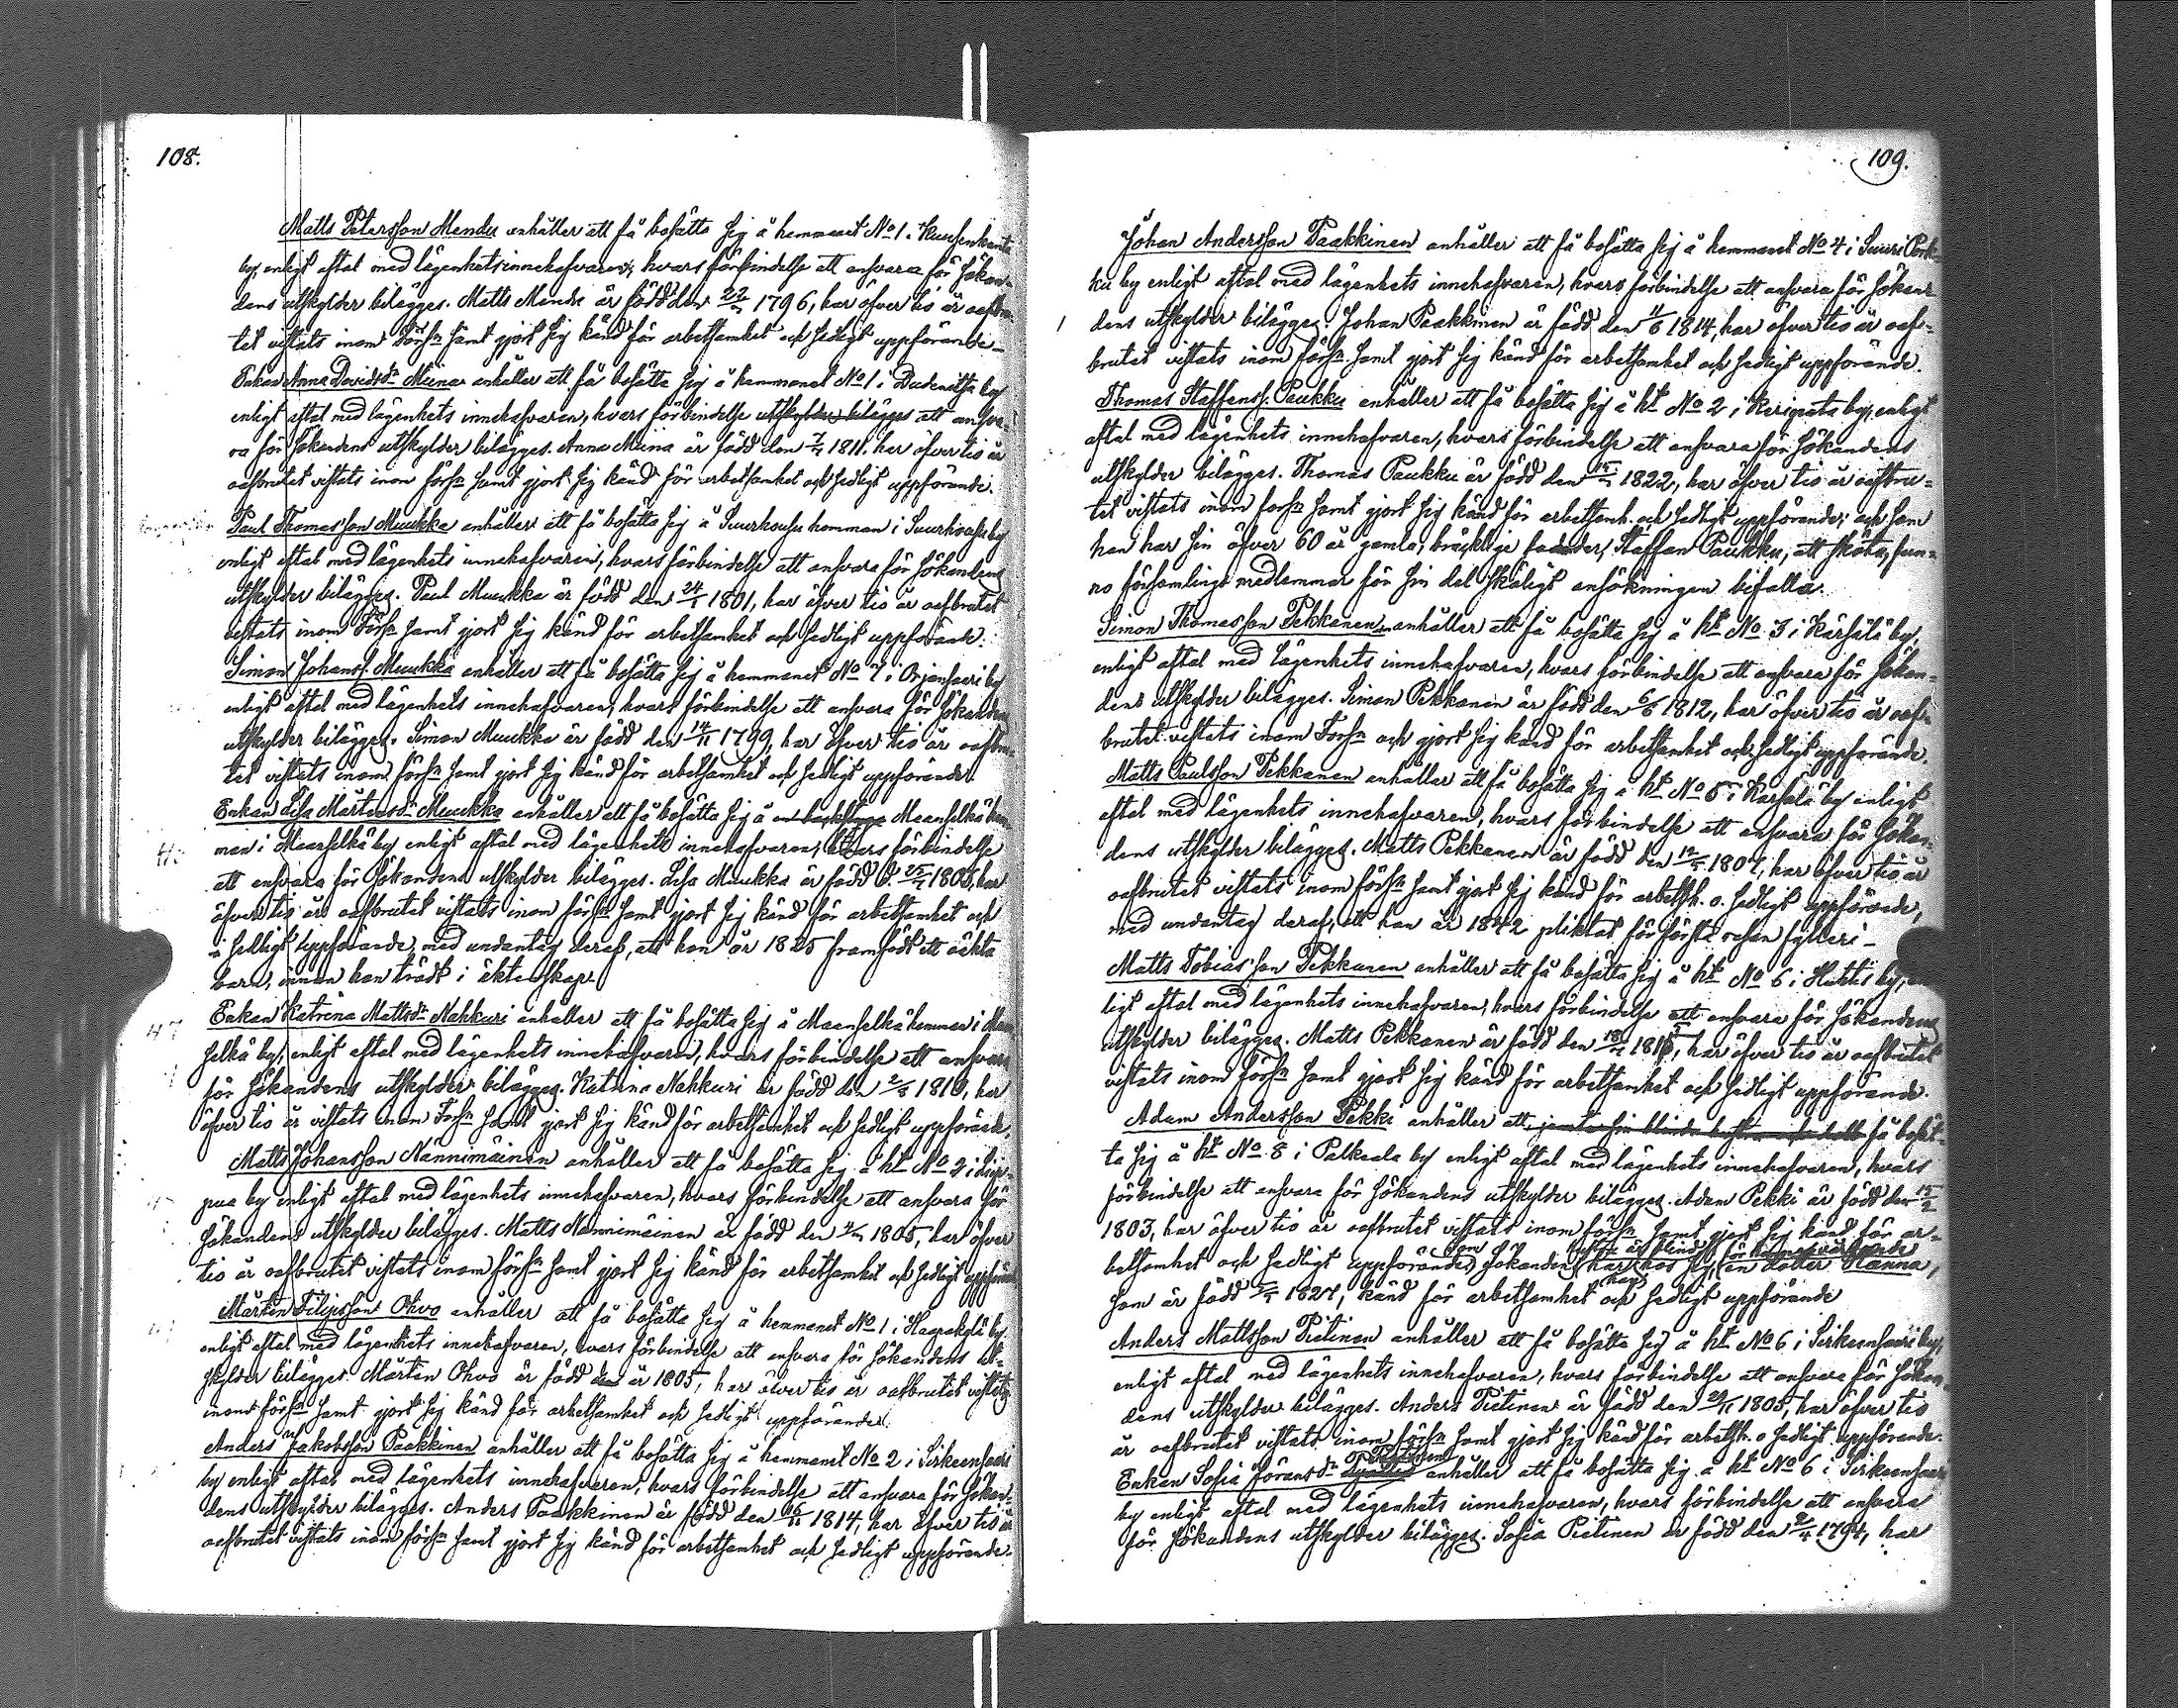 108.
Matts Petersson Mendu anhåller att få bosätta sig å hemmanet No 1 i Kuusenkanta
by, enligt aftal med lägenhetsinnehafvaren, hvars förbindelse att ansvara för sökan-
dens utskylder bilägges. Matts Mende är född den 22/ 1796, har öfver tio år oafbru-
tet vistats inom Förs:n samt gjort sig känd för arbetsamhet och sedligt uppförande.
Enkan Anna Davidsdr Meina anhåller att få bosätta sig å hemmanet No 1 i by
enligt aftal med lägenhets innehafvaren, hvars förbindelse utskylder bilägges att ansva-
ra för sökandens utskylder bilägges. Anna Meina är född den 7/ 1811. har öfver tio år
oafbrutet vistats inom förs:n samt gjort sig känd för arbetsamhet och sedligt uppförande.
Paul Thomasson Muukka anhåller att få bosätta sig å Suurhousu hemman i Suurhousu by
enligt aftal med lägenhets innehafvaren, hvars förbindelse att ansvara för sökandens
utskylder bilägges. Paul Muukka är född den 24/1 1801, har öfver tio år oafbrutet
vistats inom Förs:n samt gjort sig känd för arbetsamhet och sedligt uppförande.
Simon Johanss. Muukka anhåller att få bosätta sig å hemmanet No 7 i by
enligt aftal med lägenhets innehafvaren, hvars förbindelse att ansvara för sökandens
utskylder bilägges. Simon Muukka är född den 14/11 1799, har öfver tio år oafbru-
tet vistats inom förs:n samt gjort sig känd för arbetsamhet och sedligt uppförande.
Enkan Lisa Mårtensdr Muukka anhåller att få bosätta sig å Maaselkä hem-
man i Maaselkä by enligt aftal med lägenhets innehafvaren, hvars förbindelse
att ansvara för sökandens utskylder bilägges. Lisa Muukka är född d. 25/ 1805, har
öfver tio år oafbrutet vistats inom förs:n samt gjort sig känd för arbetsamhet och
sedligt uppförande, med undantag deraf, att hon år 1825 framfödt ett oäkta
barn, innan hon trädt i äktenskap.
47
Enkan Katrina Mattsdr Nahkuri anhåller att få bosätta sig å Maanselkä hemman i Maan-
selkä by, enligt aftal med lägenhets innehafvaren, hvars förbindelse att ansvara
för sökandens utskylder bilägges. Katrina Nahkuri är född den 1810, har
öfver tio år vistats inom Förs:n samt gjort sig känd för arbetsamhet och sedligt uppförande.
Matts Johansson Nännimäinen anhåller att få bosätta sig å ht No 2 i
pua by enligt aftal med lägenhets innehafvaren, hvars förbindelse att ansvara för
sökandens utskylder bilägges. Matts Nännimäinen är född den 1805, har öfver
tio år oafbrutet vistats inom förs:n samt gjort sig känd för arbetsamhet och sedligt uppförande
Mårten Filipsson Ohvo anhåller att få bosätta sig å hemmanet No 1 i Haapakylä by
enligt aftal med lägenhets innehafvaren, hvars förbindelse att ansvara för sökandens ut-
skylder bilägges. Mårten Ohvo är född den år 1805, har öfver tio år oafbrutet vistats
inom förs:n samt gjort sig känd för arbetsamhet och sedligt uppförande.
Anders Jakobsson Paakkinen anhåller att få bosätta sig å hemmanet No 2 i Sirkeensaari
by enligt aftal med lägenhets innehafvaren, hvars förbindelse att ansvara för sökan-
dens utskylder bilägges. Anders Paakkinen är född den 16/11 1814, har öfver tio år
oafbrutet vistats inom förs:n samt gjort sig känd för arbetsamhet och sedligt uppförande.
109.
Johan Andersson Paakkinen anhåller att få bosätta sig å hemmanet No 4 i Suuri Pork-
ku by enligt aftal med lägenhets innehafvaren, hvars förbindelse att ansvara för sökan-
dens utskylder bilägges. Johan Paakkinen är född den 11/6 1814, har öfver tio år oaf-
brutet vistats inom förs:n samt gjort sig känd för arbetsamhet och sedligt uppförande.
Thomas Staffenss. Paukku anhåller att få bosätta sig å ht No 2 i by, enligt
aftal med lägenhets innehafvaren, hvars förbindelse att ansvara för sökandens
utskylder bilägges. Thomas Paukku är född den 15/ 1822, har öfver tio år oafbru-
tet vistats inom förs:n samt gjort sig känd för arbetsamh. och sedligt uppförande; och som
han har sin öfver 60 år gamla, bräcklige fader, Staffan Paukku, att sköta, fun-
no församlings medlemmar för sin del skäligt ansökningen bifalla.
Simon Thomasson Pekkanen anhåller att få bosätta sig å ht No 3 i Kärsälä by,
enligt aftal med lägenhets innehafvaren, hvars förbindelse att ansvara för sökan-
dens utskylder bilägges. Simon Pekkanen är född den 6/6 1812, har öfver tio år oaf-
brutet vistats inom Förs:n och gjort sig känd för arbetsamhet och sedligt uppförande.
Matts Paulsson Pekkanen anhåller att få bosätta sig å ht No 5 i Kärsälä by enligt
aftal med lägenhets innehafvaren, hvars förbindelse att ansvara för sökan-
dens utskylder bilägges. Matts Pekkanen är född den 12/ 1807, har öfver tio år
oafbrutet vistats inom förs:n samt gjort sig känd för arbetsh. o. sedligt uppförande,
med undantag deraf, att han år 1842 pliktat för första resan fylleri.
Matts Tobiasson Pekkanen anhåller att få bosätta sig å ht No 6 i Huttis by, en-
ligt aftal med lägenhets innehafvaren, hvars förbindelse att ansvara för sökandens
utskylder bilägges. Matts Pekkanen är född den har öfver tio år oafbrutet
vistats inom förs:n samt gjort sig känd för arbetsamhet och sedligt uppförande.
Adam Andersson Pekki anhåller att jemte sin blinda hustru få bosät-
ta sig å ht No 8 i Palkeala by enligt aftal med lägenhets innehafvaren, hvars
förbindelse att ansvara för sökandens utskylder bilägges. Adam Pekki är född den 15/2
1803, har öfver tio år oafbrutet vistats inom förs:n samt gjort sig känd för ar-
betsamhet och sedligt uppförande; sökandens hustru är blind har hos sig, en dotter Hanna,
som är född 1827, känd för arbetsamhet och sedligt uppförande
Anders Mattsson Pietinen anhåller att få bosätta sig å ht No 6 i Sirkeensaari by,
enligt aftal med lägenhets innehafvaren, hvars förbindelse att ansvara för sökan-
dens utskylder bilägges. Anders Pietinen är född den 29/11 1805, har öfver tio
år oafbrutet vistats inom förs:n samt gjort sig känd för arbetsh. o sedligt uppförande.
Enkan Sofia Göransdr Pietinen anhåller att få bosätta sig å ht No 6 i Sirkeensaari
by enligt aftal med lägenhets innehafvaren, hvars förbindelse att ansvara
för sökandens utskylder bilägges. Sofia Pietinen är född den 1794, har